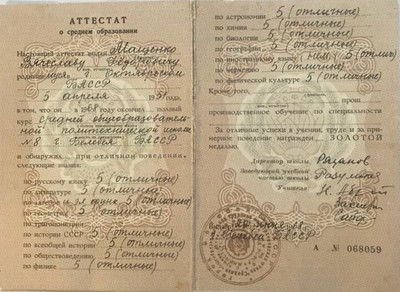 АТТЕСТАТ
о среднем образовании
Настоящий аттестат выдан Мащенко
Вячеславу Федоровичу
родившемуся в г. Октябрьском
БАССР
5 апреля 1951
в том, что он в 1968 году окончил полный
курс средней общеобразователь-
ной политехнической школы
№ 8 г. Белебей БАССР
и обнаружил при отличном поведении
следующие знания:
по русскому языку 5 (отличные)
по литературе 5 (отличные)
по алгебре и эл. функц. 5 (отличные)
по геометрии 5 (отличные)
по тригонометрии
по истории СССР 5 (отличные)
по всеобщей истории 5 (отличные)
по обществоведению 5 (отличные)
по физике 5 (отличные)
по астрономии 5 (отличные)
по химии 5 (отличные)
по биологии 5 (отличные)
по географии 5 (отличные)
по иностранному языку (нем) 5 (отлич)
по черчению 5 (отличные)
по физической культуре 5 (отличные)
Кроме того,
прошёл
производственное обучение по специальности
За отличные успехи в учении, труде и за при-
мерное поведение награжден ЗОЛОТОЙ
медалью.
Директор школы
Заместитель директора
школы Разумова
Учителя
г. Белебей БАССР
А № 068059